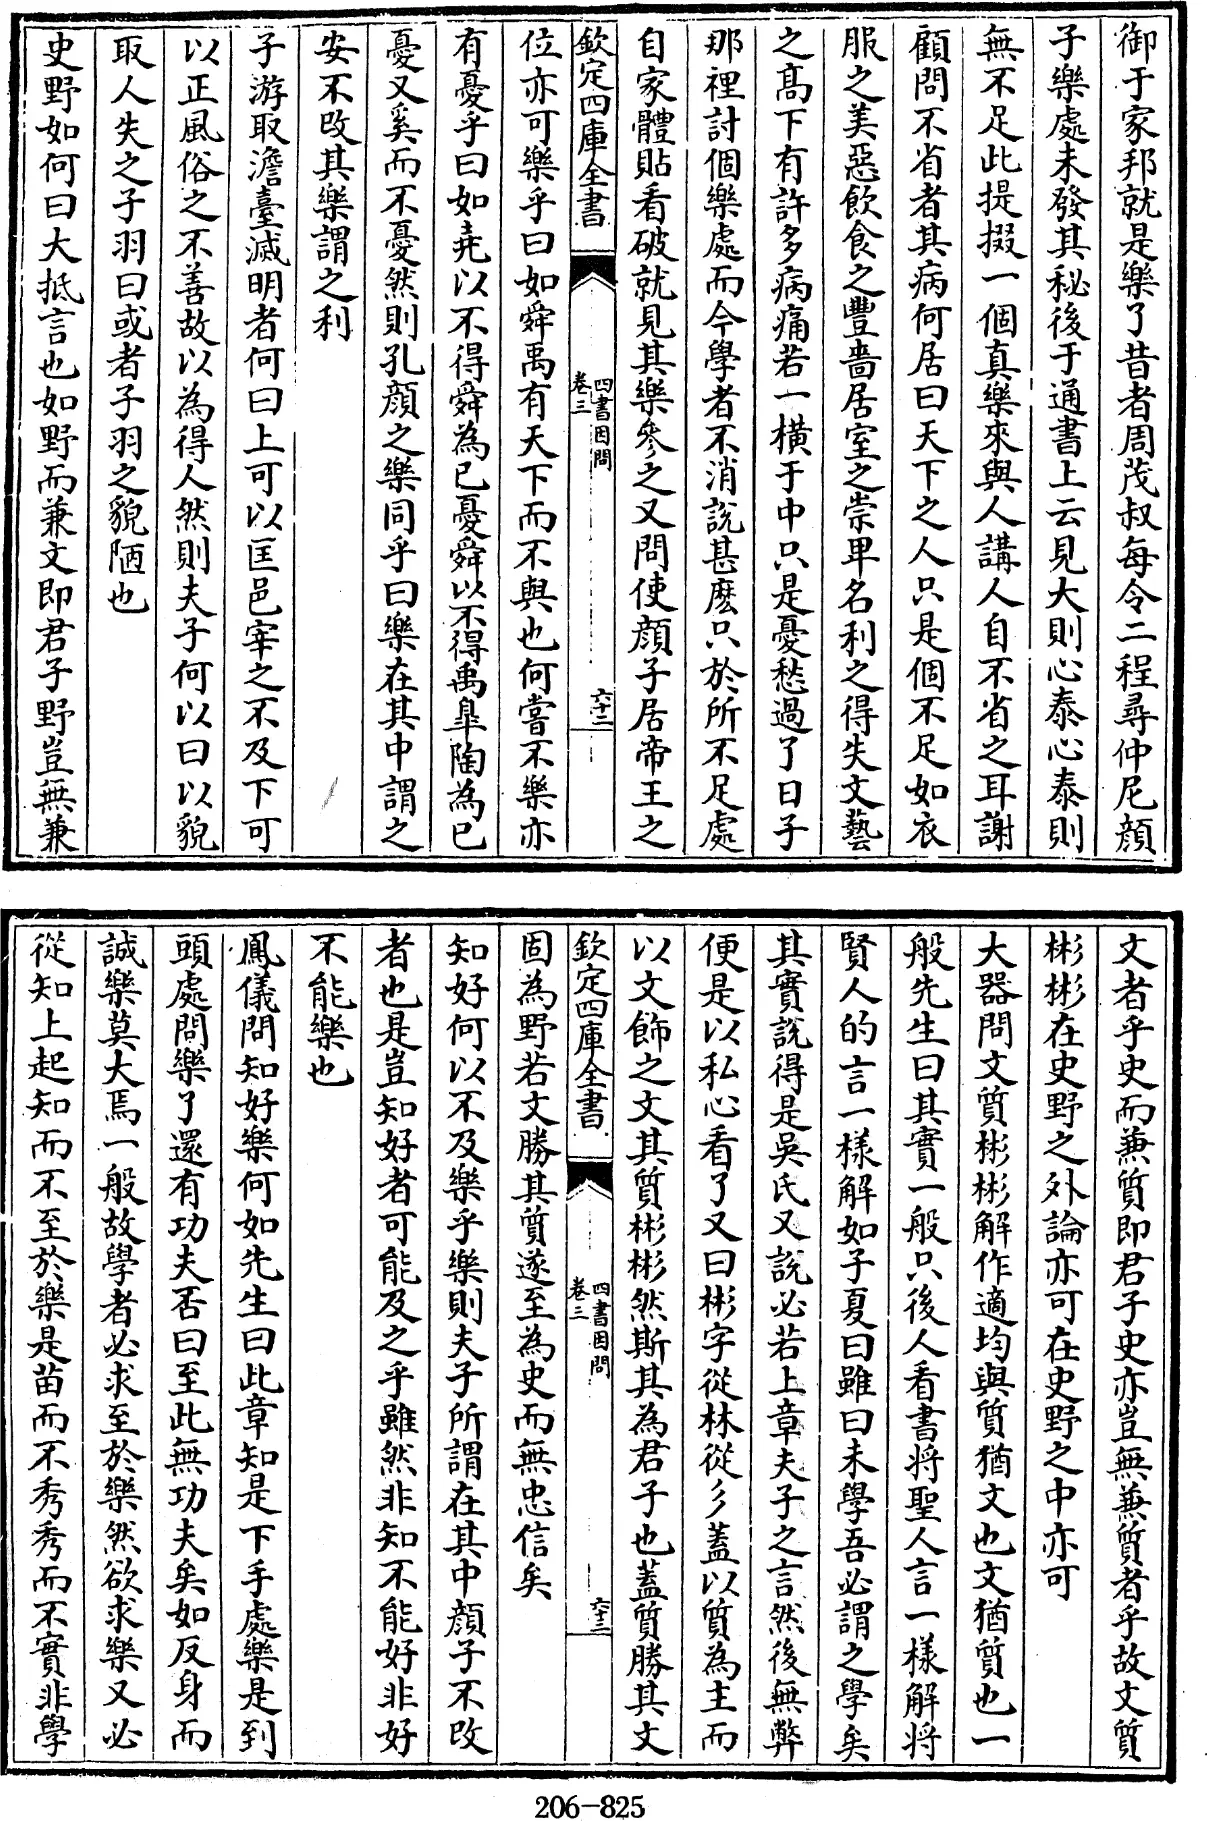 御于家邦就是樂了昔者周茂叔每令二程尋仲尼顔
子樂處未發其秘後于通書上云見大則心泰心泰則
無不足此提掇一個真樂來與人講人自不省之耳謝
顧問不省者其病何居曰天下之人只是個不足如衣
服之美惡飲食之豐嗇居室之崇卑名利之得失文藝
之髙下有許多病痛若一橫于中只是憂愁過了日子
那裡討個樂處而今學者不消說甚麽只於所不足處
自家體貼看破就見其樂參之又問使顔子居帝王之
欽定四庫全書
四書因問
卷三
六十二
位亦可樂乎曰如舜禹有天下而不與也何嘗不樂亦
有憂乎曰如堯以不得舜為已憂舜以不得禹臯陶為已
憂又奚而不憂然則孔顔之樂同乎曰樂在其中謂之
安不改其樂謂之利
子游取澹臺滅明者何曰上可以匡邑宰之不及下可
以正風俗之不善故以為得人然則夫子何以曰以貌
取人失之子羽曰或者子羽之貌陋也
史野如何曰大抵言也如野而兼文即君子野豈無兼
文者乎史而兼質即君子史亦豈無兼質者乎故文質
彬彬在史野之外論亦可在史野之中亦可
大器問文質彬彬解作適均與質猶文也文猶質也一
般先生曰其實一般只後人看書將聖人言一樣解將
賢人的言一樣解如子夏曰雖曰未學吾必謂之學矣
其實說得是吳氏又說必若上章夫子之言然後無弊
便是以私心看了又曰彬字從林從彡蓋以質為主而
以文飾之文其質彬彬然斯其為君子也蓋質勝其文
欽定四庫全書
四書因問
卷三
六十三
固為野若文勝其質遂至為史而無忠信矣
知好何以不及樂乎樂則夫子所謂在其中顔子不改
者也是豈知好者可能及之乎雖然非知不能好非好
不能樂也
鳳儀問知好樂何如先生曰此章知是下手處樂是到
頭處問樂了還有功夫否曰至此無功夫矣如反身而
誠樂莫大焉一般故學者必求至於樂然欲求樂又必
從知上起知而不至於樂是苗而不秀秀而不實非學
206-825